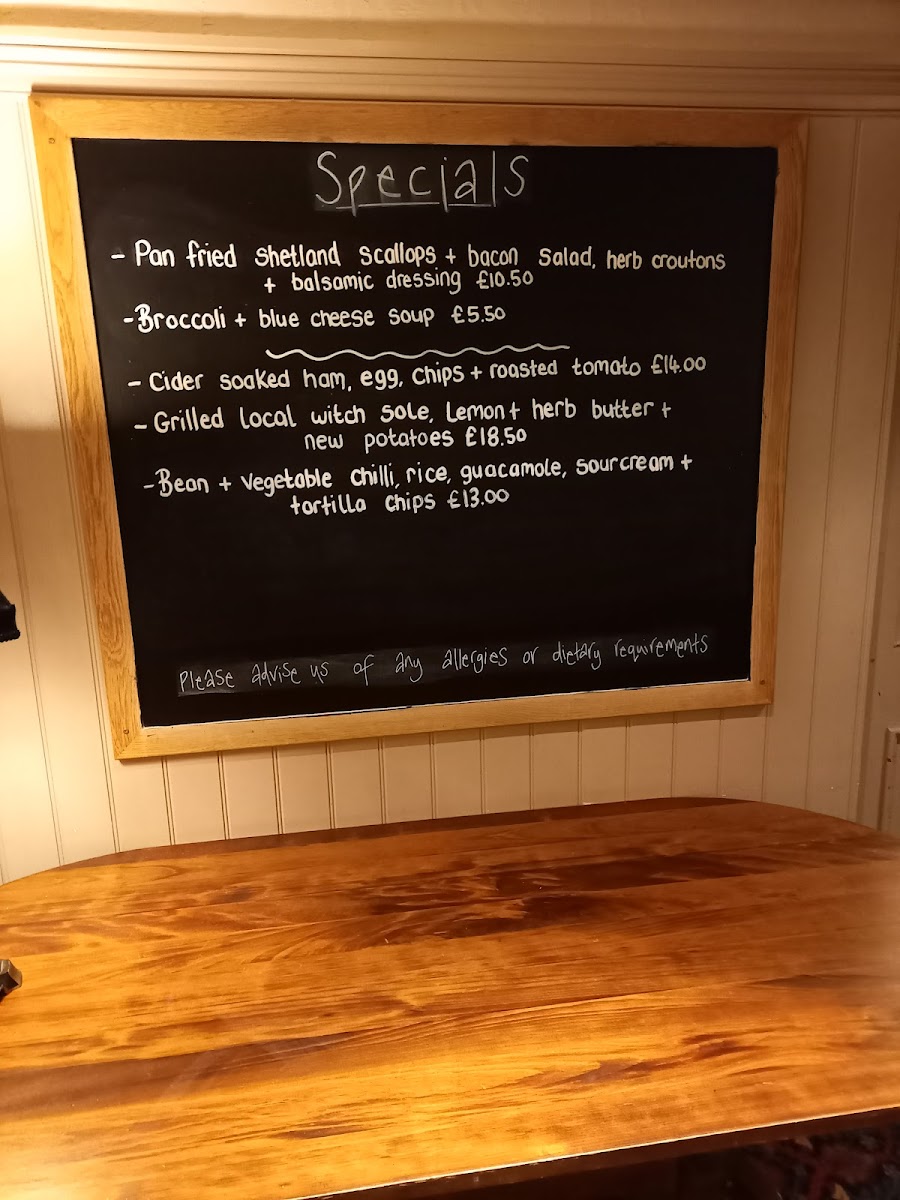 Specials
- Pan fried Shetland Scallops + bacon Salad, herb croutons
+ balsamic dressing £10.50
- Broccoli + blue cheese soup £5.50
- Cider soaked ham, egg, chips + roasted tomato £14.00
- Grilled local witch sole, Lemon + herb butter +
new potatoes £18.50
- Bean + vegetable chilli, rice, guacamole, sour cream +
tortilla chips £13.00
Please advise us of any allergies or dietary requirements